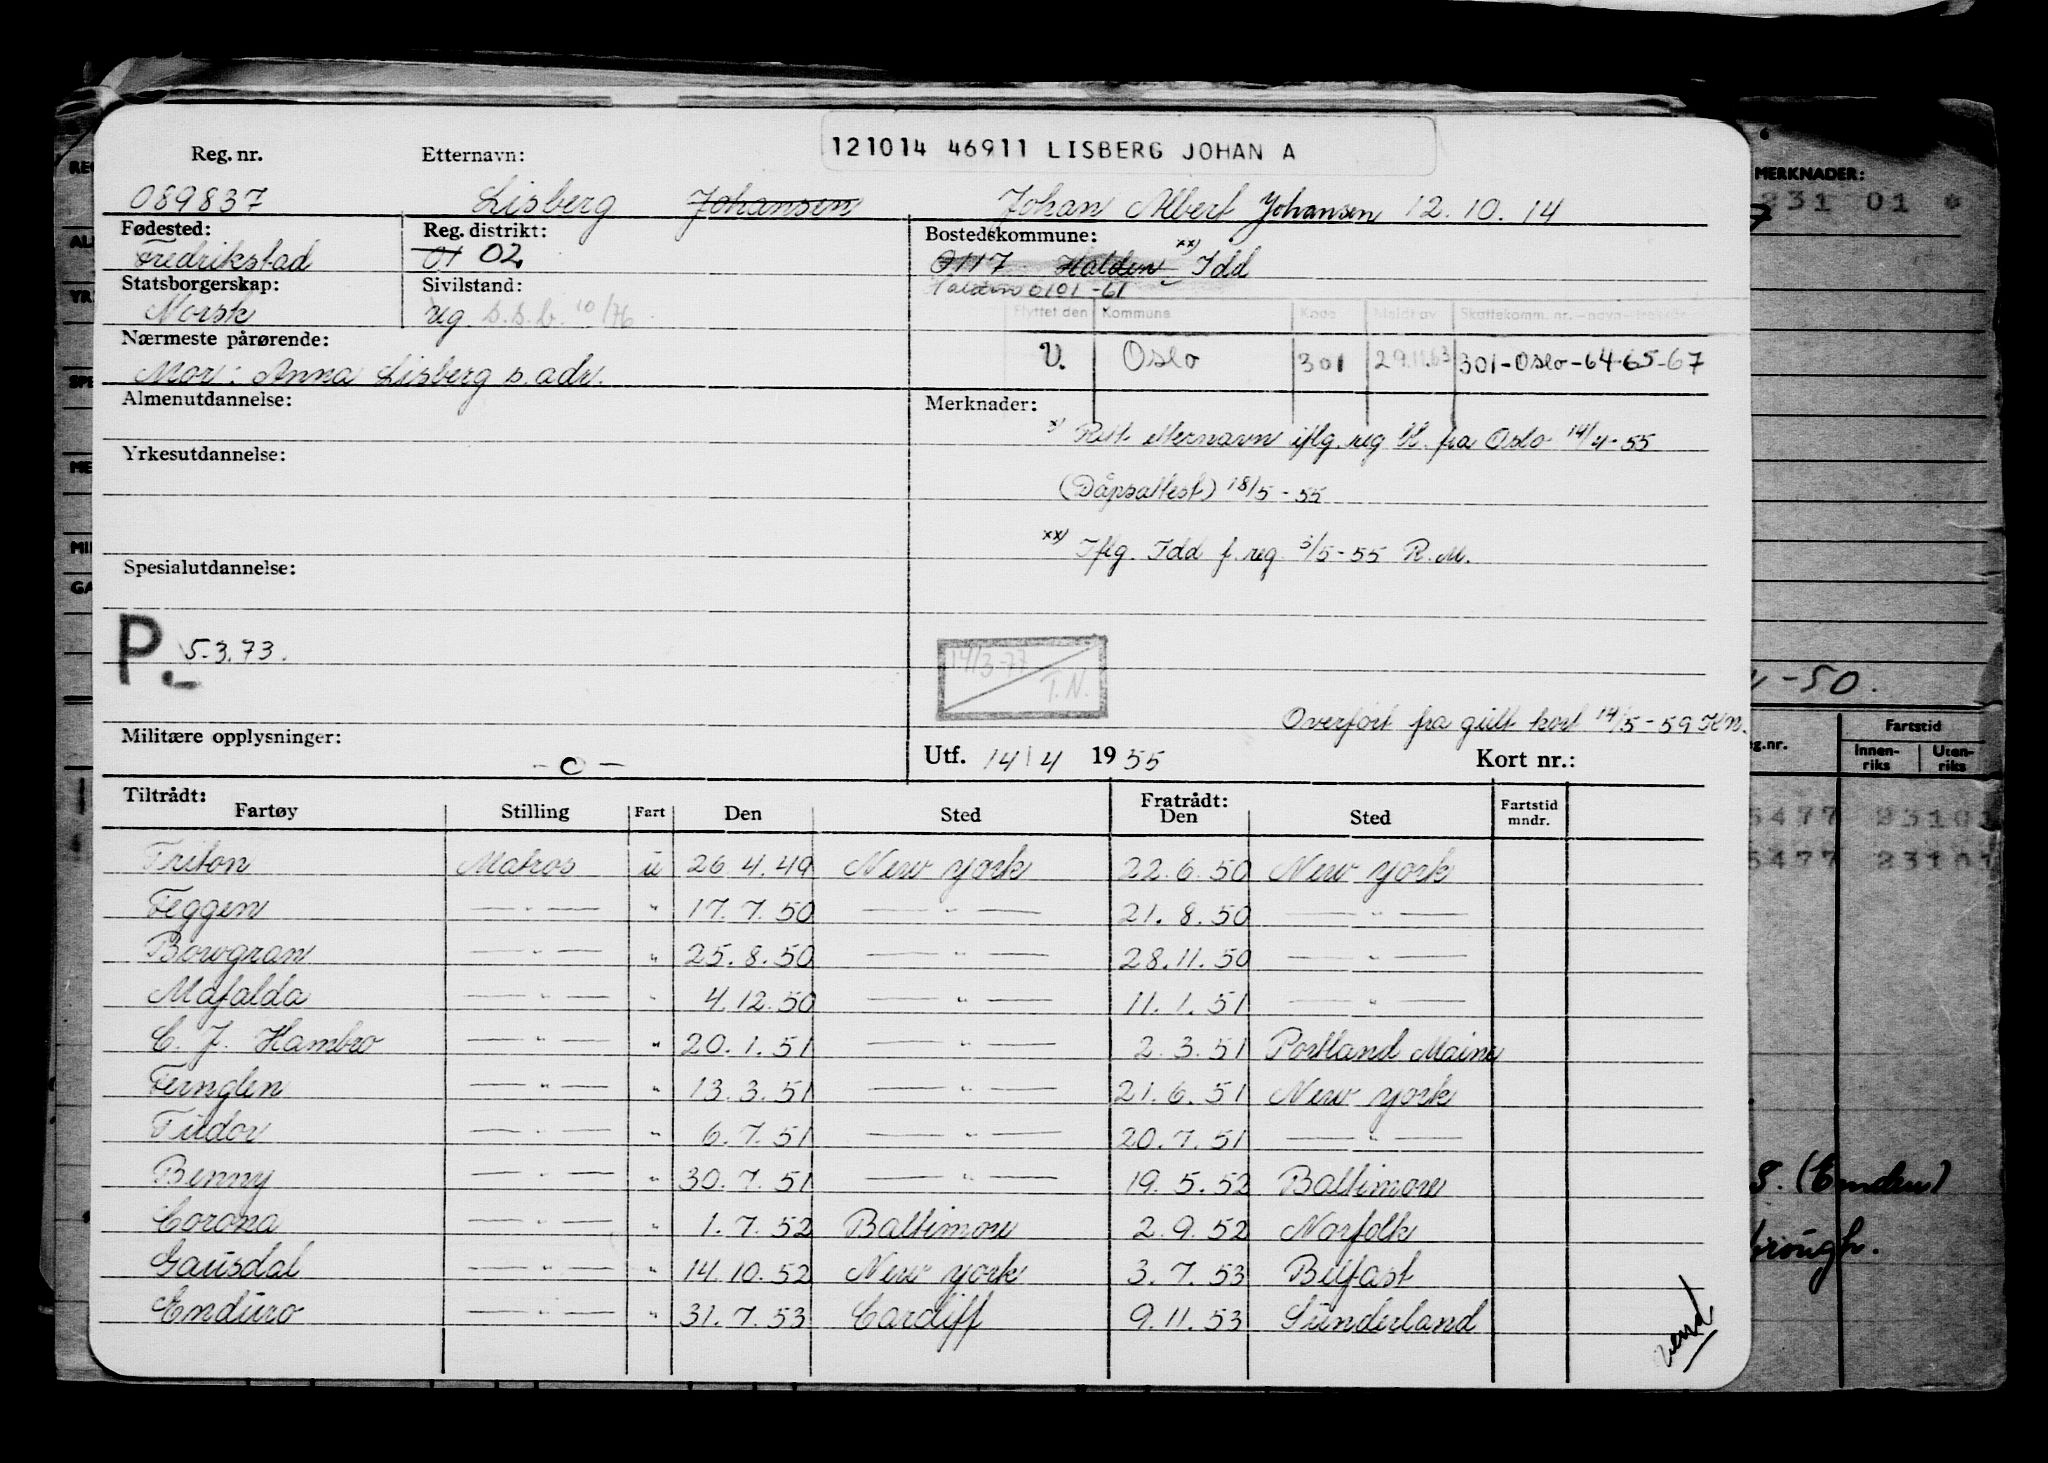 121014 46911 LISBERG JOHAN A
Reg. nr. Etternavn:
089837 Lisberg Johansen Johan Albert Johansen 12.10.14
Fødested: Reg. distrikt: Bostedskommune:
Fredrikstad 01 02 0117 Halden xx) Idd
Halden 0101-61
Statsborgerskap: Sivilstand:
Norsk ug. s.s.b. 10/76
Flyttet den Kommune Kode Meldt av Skattekomm. nr.
V. Oslo 301 29.11.63 301-Oslo-64-65-67
Nærmeste pårørende:
Mor: Anna Lisberg s. adr.
Almenutdannelse: Merknader:
x) Rett etternavn iflg. reg bl. fra Oslo 14/4-55
Yrkesutdannelse:
(Dåpsattest) 18/5-55
xx) Iflg. Idd f. reg. 3/5-55 R.M.
Spesialutdannelse:
P.- 5.3.73.
14/3-77
T.N.
Overført fra gult kort 14/5-59 KN.
Militære opplysninger: -o- Utf. 14/4 1955 Kort nr.:
Tiltrådt: Fratrådt:
Fartøy Stilling Fart Den Sted Den Sted Fartstid mndr.
Triton Matros u 26.4.49 New York 22.6.50 New York
Feggen —"— " 17.7.50 —"— 21.8.50 —"—
Bowgran —"— " 25.8.50 —"— 28.11.50 —"—
Mafalda —"— " 4.12.50 —"— 11.1.51 —"—
C. J. Hambro —"— " 20.1.51 —"— 2.3.51 Portland Maine
Fernglen —"— " 13.3.51 —"— 21.6.51 New York
Tudor —"— " 6.7.51 —"— 20.7.51 —"—
Benny —"— " 30.7.51 —"— 19.5.52 Baltimore
Corona —"— " 1.7.52 Baltimore 2.9.52 Norfolk
Gausdal —"— " 14.10.52 New York 3.7.53 Belfast
Enduro —"— " 31.7.53 Cardiff 9.11.53 Sunderland
vend
MERKNADER:
231 01
-50.
Fartstid
g.nr. Innen-riks Uten-riks
5477 23101
5477 23101
S. (Emden)
brough.